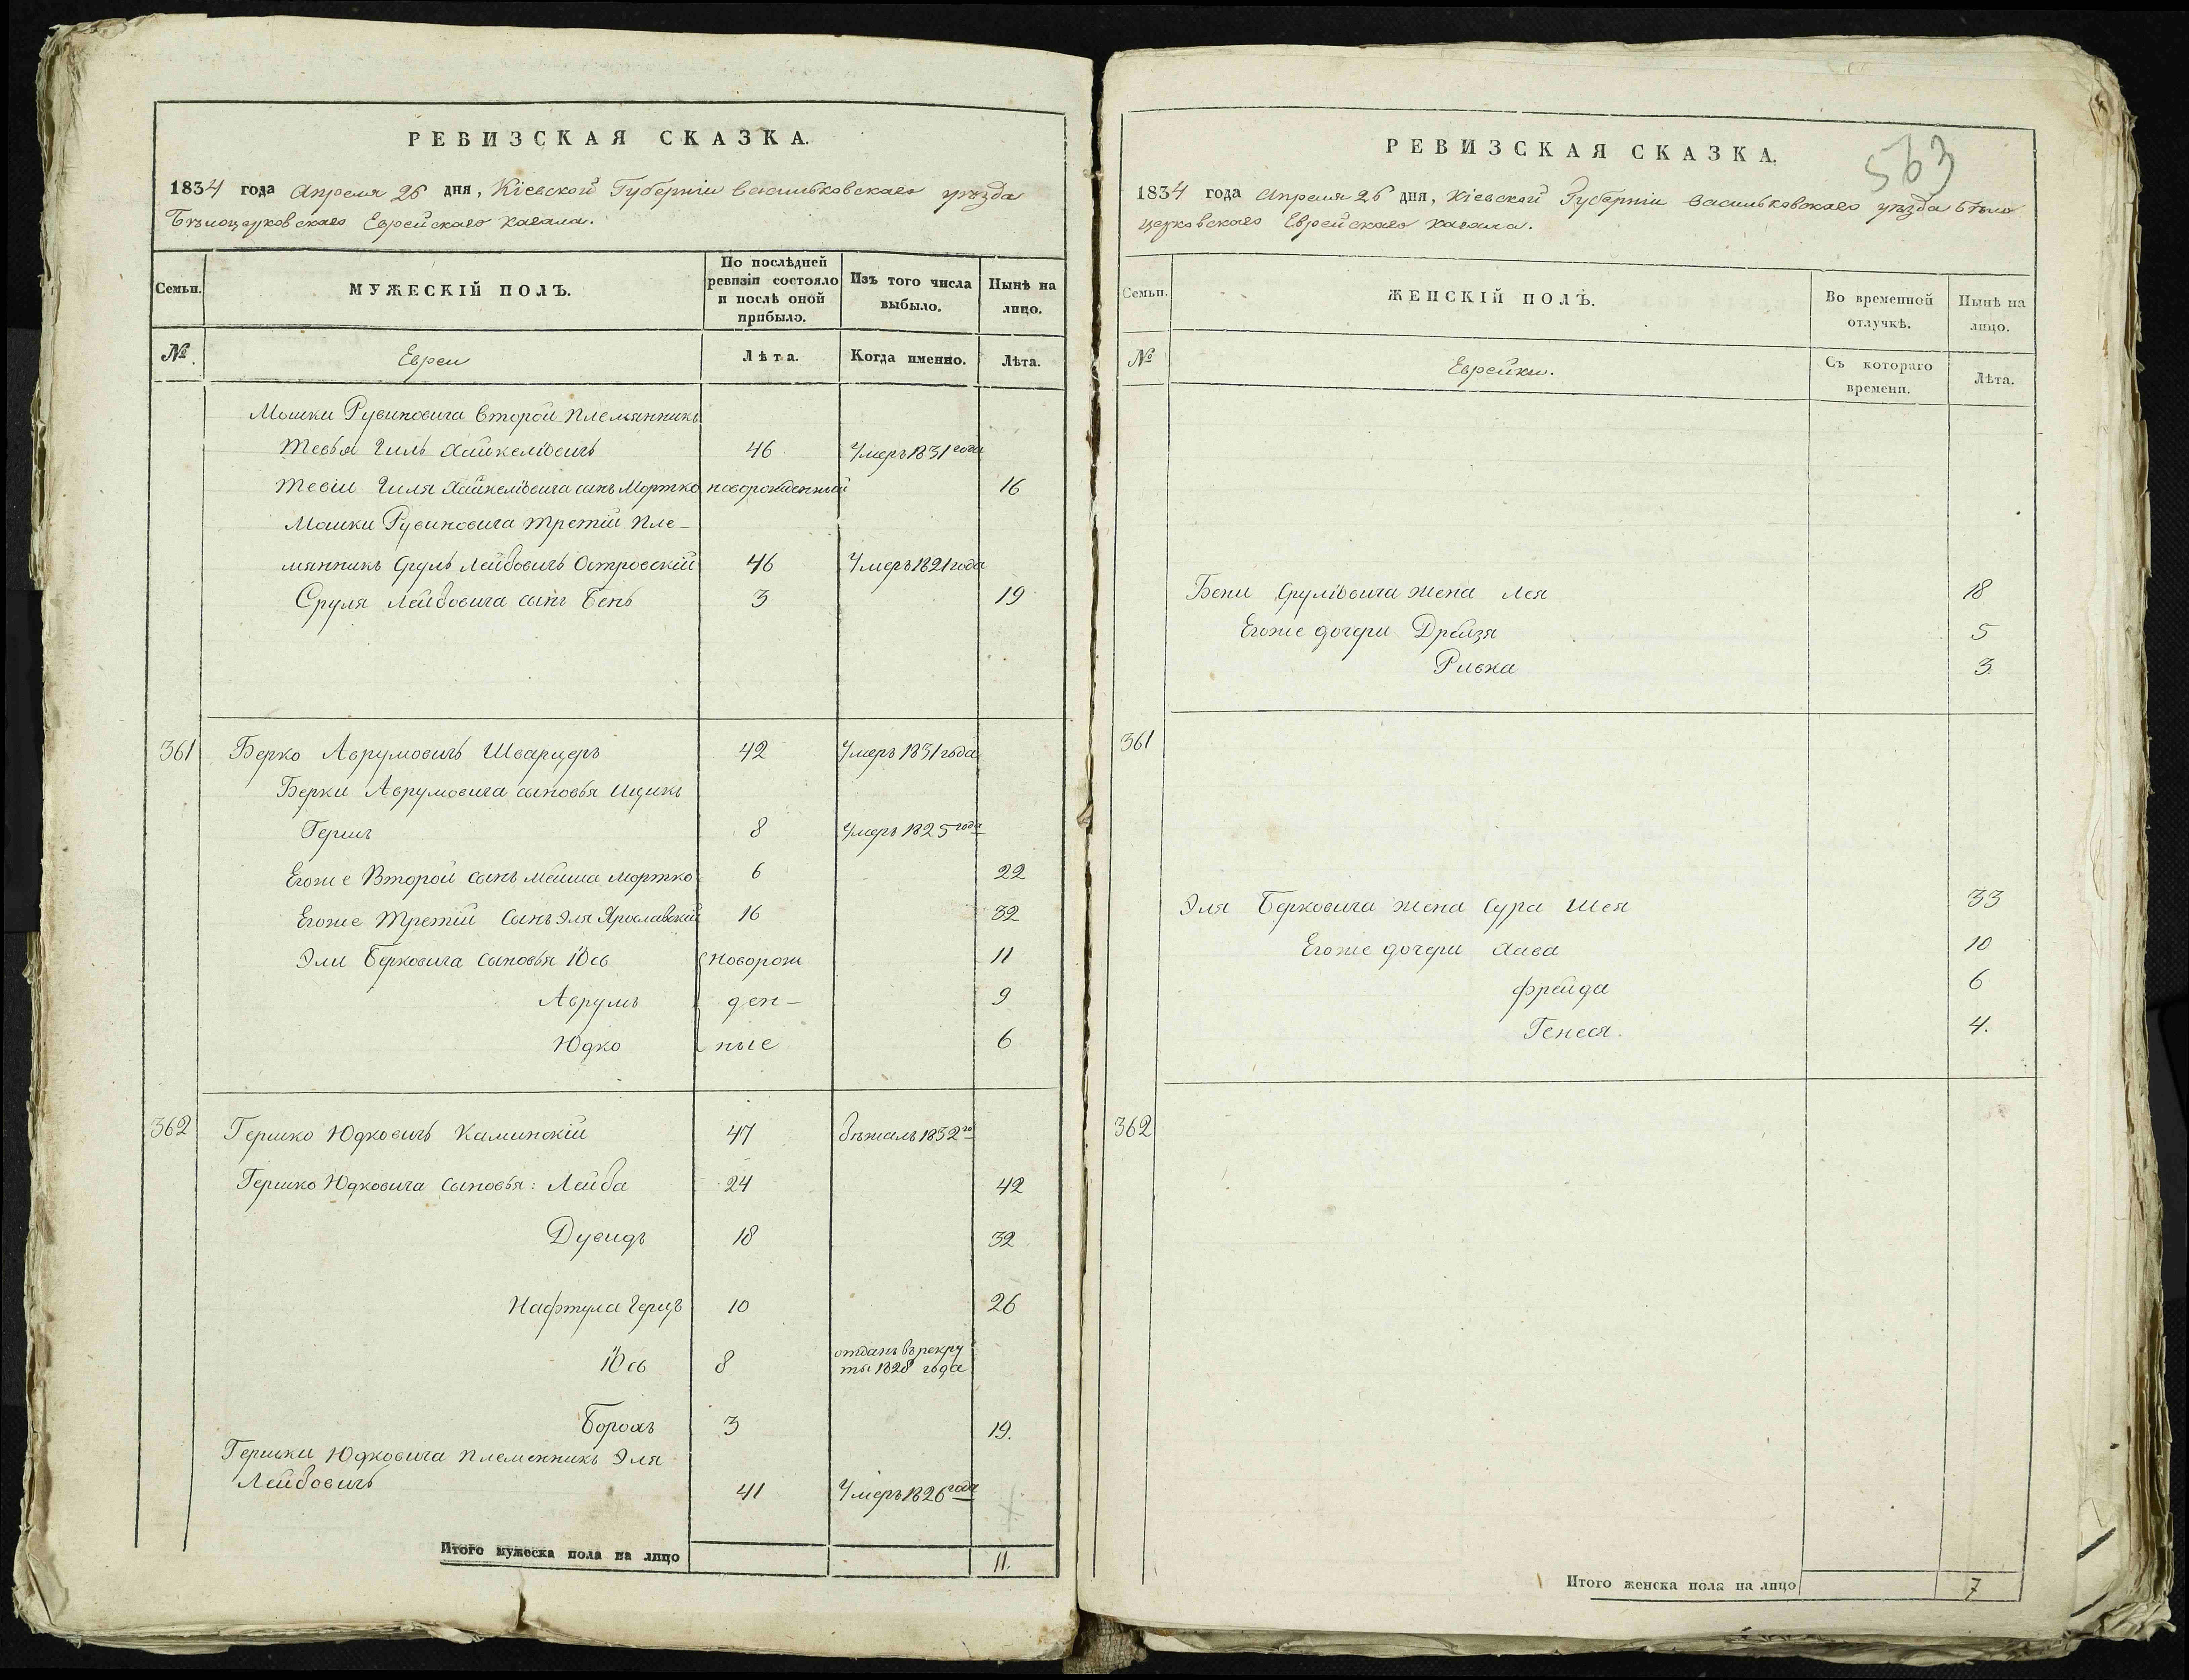 РЕВИЗСКАЯ СКАЗКА.
1834 года Апреля 26 дня, Кіевской Губерніи Васильковскаго уѣзда
Бѣлоцерковскаго Еврейскаго Кагала.
Семьи.
МУЖЕСКІЙ ПОЛЪ.
По послѣдней
ревизіи состояло
и послѣ оной
прибыло.
Изъ того числа
выбыло.
Нынѣ на
лицо.
№
Евреи
Лѣта.
Когда именно.
Лѣта.
Мошки Рувиновича второй племянникъ
Тевья Гиль Хайкелiовичъ 46 Умеръ 1831 года
Тевіи Гиля Хайкелiовича сынъ Мортко новорожденный 16
Мошки Рувиновича третій пле-
мянникъ Сруль Лейбовичъ Островскій 46 Умеръ 1821 года
Сруля Лейбовича сынъ Бень 3 19
361 Берко Аврумовичъ Шварцеръ 42 Умеръ 1831 года
Берки Аврумовича сыновья Ицикъ
Гершъ 8 Умеръ 1825 года
Егоже Второй сынъ Мейша Мортко 6 22
Егоже Третій Сынъ Эля Ярославскій 16 32
Эли Берковича сыновья Iось Новорож 11
Аврумъ ден- 9
Юдко ные 6
362 Гершко Юдковичъ Каминскій 47 бѣжалъ 1832 го
Гершко Юдковича сыновья: Лейба 24 42
Дувидъ 18 32
Нафтула Герцъ 10 26
Іось 8 отданъ въ рекру
ты 1828 года
Борохъ 3 19.
Гершки Юдковича племенникъ Эля
Лейбовичъ 41 Умеръ 1826 года
Итого мужеска пола на лицо 11.
563
РЕВИЗСКАЯ СКАЗКА.
1834 года Апреля 26 дня, Кіевской Губерніи Васильковскаго уѣзда Бѣло
церковскаго Еврейскаго кагала.
Семьи.
ЖЕНСКІЙ ПОЛЪ.
Во временной
отлучкѣ.
Нынѣ на
лицо.
№
Еврейки.
Съ котораго
времени.
Лѣта.
Бени Срулiовича жена Лея 18
Егоже дочери Дрейзя 5
Ривка 3.
361
Эля Берковича жена Сура Шея 33
Егоже дочери Хава 10
Фрейда 6
Генеся. 4.
362
Итого женска пола на лицо 7